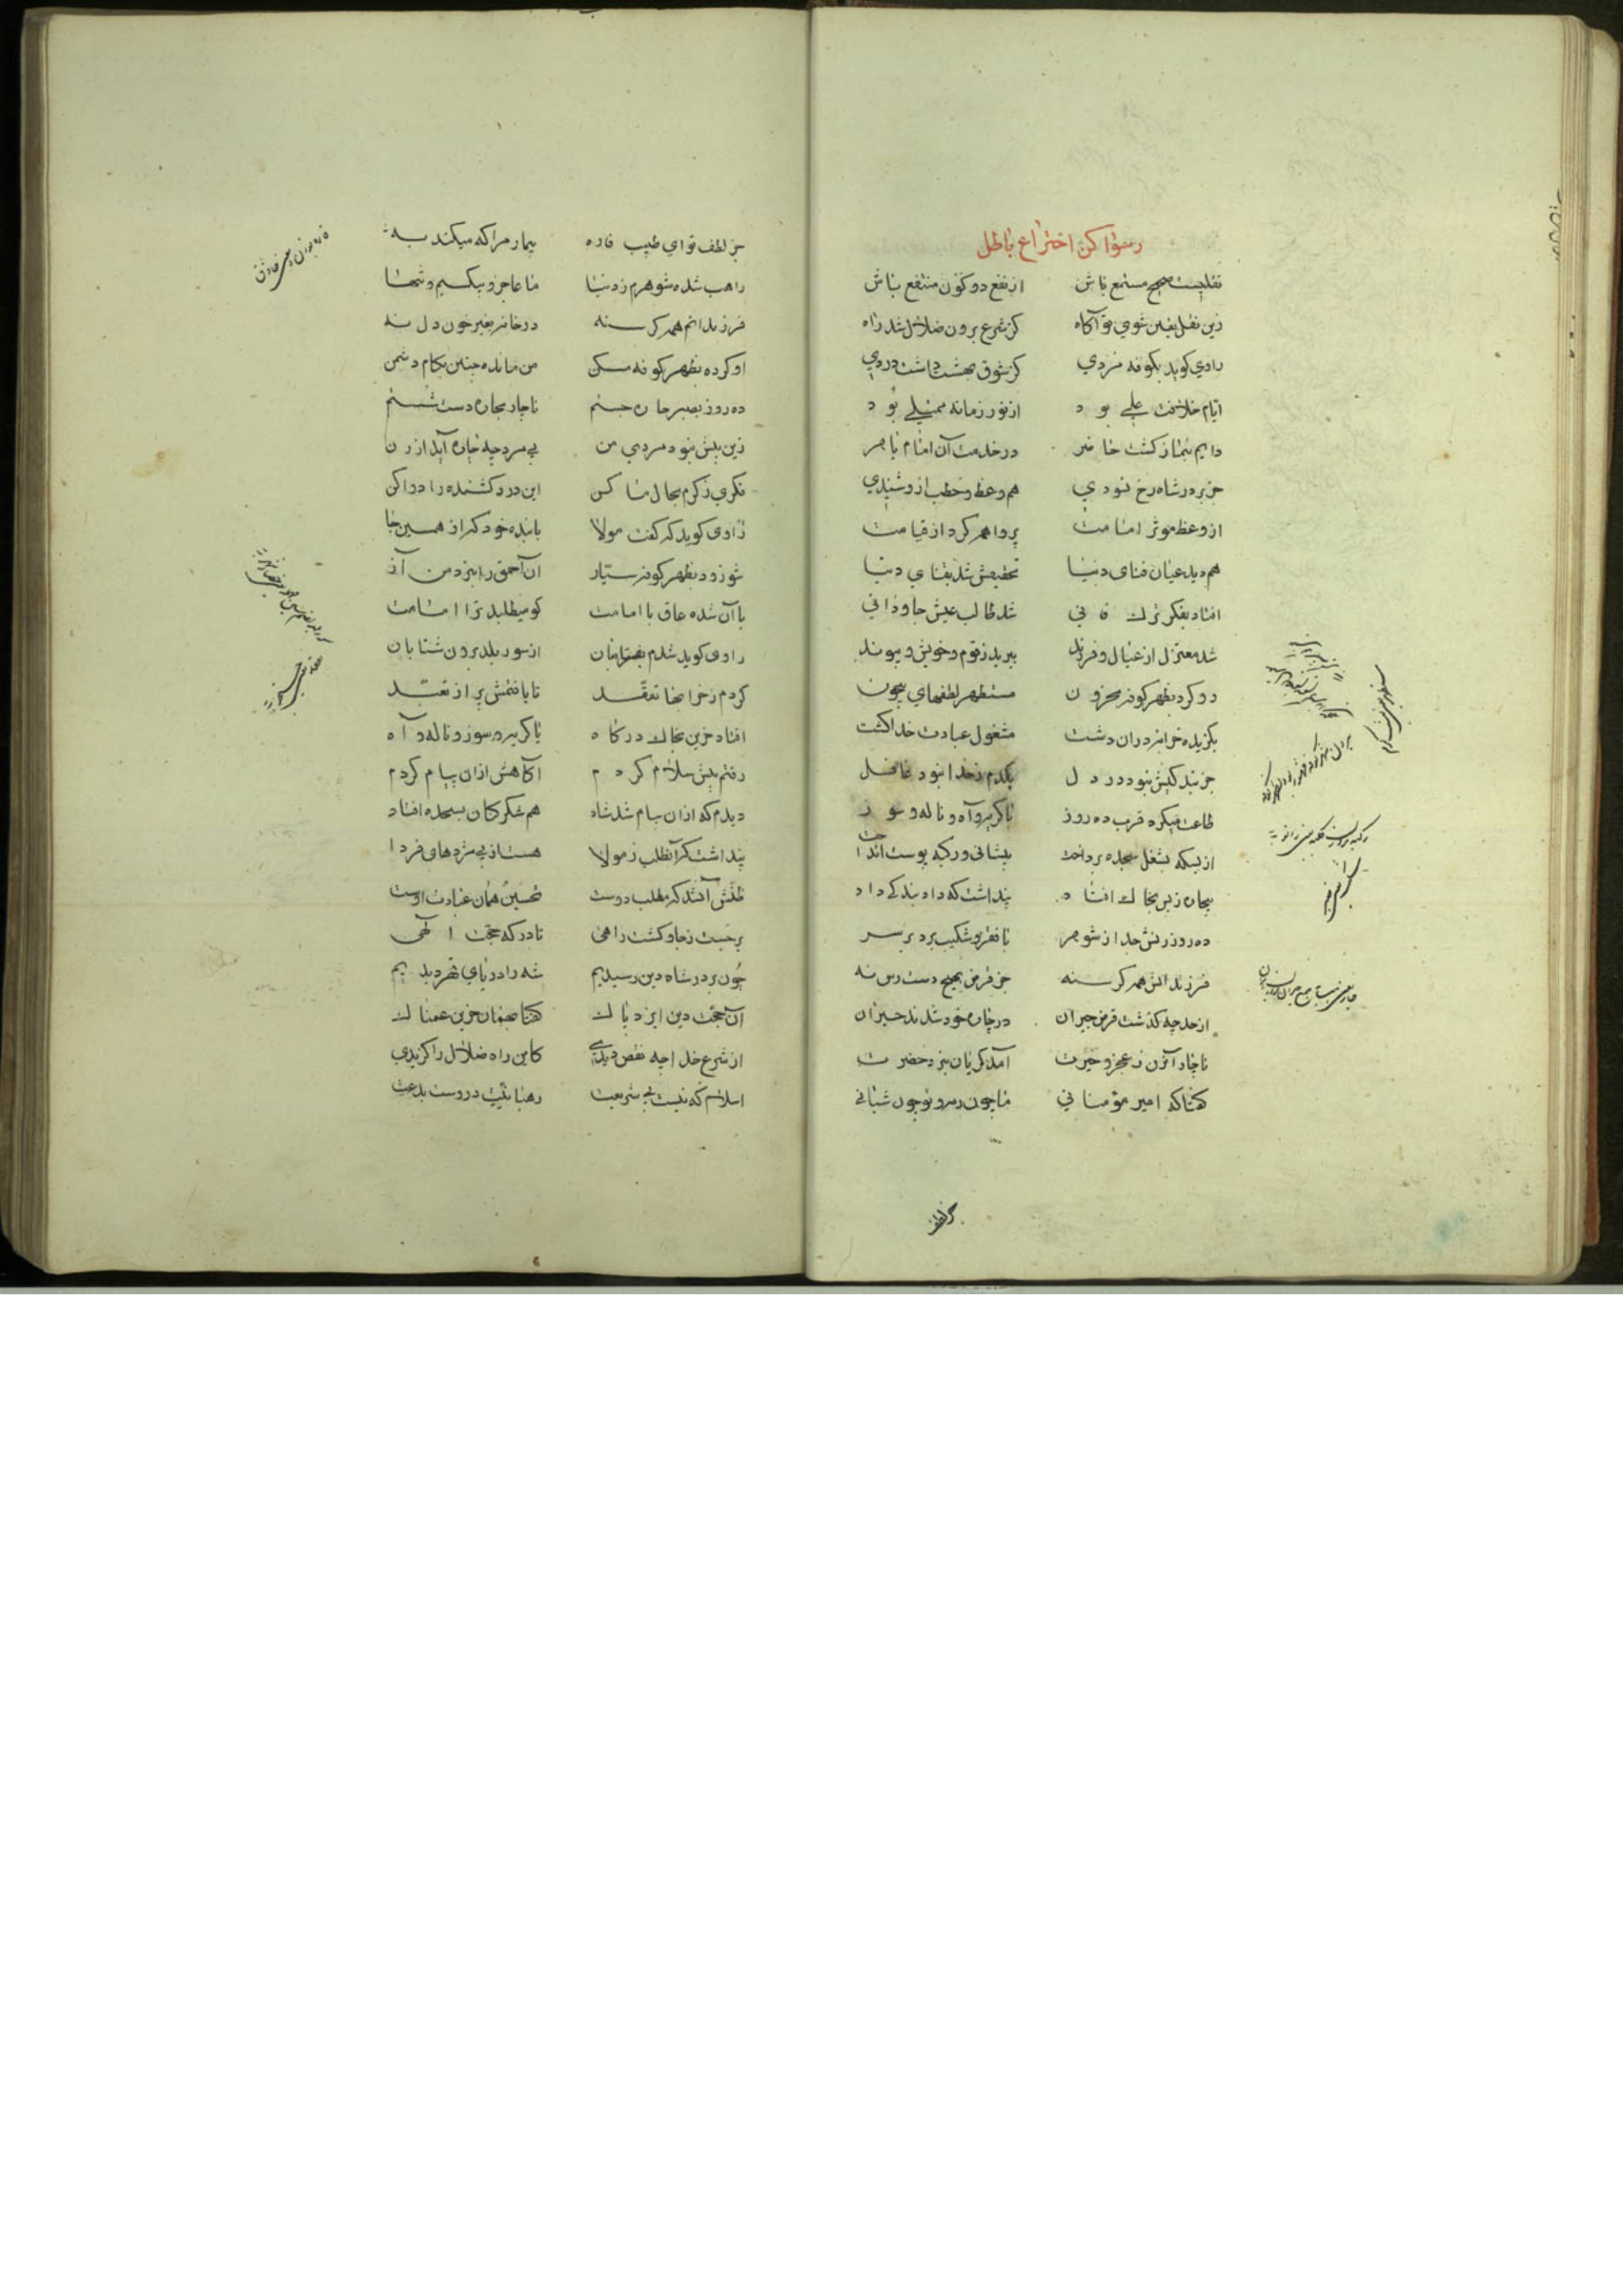 رسوا کن اختراع باطل
نقلیست صحیح مستمع باش از نفع دو کون منتفع باش
زین نقل یقین شوی تو آگاه کز شرع برون ضلال شد راه
راوی کوید بکوفه مردی کز شوق بهشت داشت دردی
ایام خلافت علی بود از نور زمانه ممتلی بود
دایم بنماز کشت حاضر در خدمت آن امام باهر
جز بر در شاه رخ نسودی هم وعظ و خطب ازو شنیدی
از وعظ موثر امامت پروا هم کرد از قیامت
هم دید عیان فنای دنیا تحقیقش شد بقنای دنیا
افتاد بفکر ترک فانی شد طالب عیش جاودانی
شد معتزل از عیال و فرزند ببرید ز قوم و خویش و پیوند
رو کرد بظهر کوفه محزون مستظهر لطفهای بیچون
بکزیده خرابه در ان دشت مشغول عبادت خدا کشت
جز بندکیش نبود در دل یکدم ز خدا نبود غافل
طاعت میکرد قرب ده روز با کریه و آه و ناله و سوز
از بسکه بشغل سجده پرداخت پیشانی و رکبه پوست انداخت
بیجان ز بر بخاک افتاد پنداشت که داد بندکی داد
ده روز زنش جدا ز شوهر با فقر و شکیب برد بر سر
فرزندانش همه کرسنه جز قرض بهیچ دست رس نه
از حد چه کذشت قرض جیران در چاره خود شدند حیران
ناچار آن زن ز عجز و حیرت آمد کریان بنزد حضرت
کفتا که امیر مؤمنانی ما چون رمه و تو چون شبانی
جز لطف
جز لطف تو ای طبیب فاره بیمار مرا که میکند به
راهب شده شوهرم ز دنیا ما عاجز و بیکسیم و تنها
فرزندانم همه کرسنه در خانه بغیر خون دل نه
او کرده بظهر کوفه مسکن من مانده چنین بکام دشمن
ده روز بصبر چاره جستم ناچار بچاره دست شستم
زین بیش نبود مردی من بی مرد چه چاره آید از زن
فکری ز کرم بحال ما کن این درد کشنده را دوا کن
راوی کوید که کفت مولا با بنده خود که از همین جا
شو زود بظهر کوفه سیار آن احمق را بنزد من آر
با آن شده عاق با امامت کو میطلبد ترا امامت
راوی کوید شدم بفرمان از سور بلد برون شتابان
کردم ز خرابها تفقد تا یافتمش پر از تعبد
افتاد حزین بخاک درکاه با کریه و سوز و ناله و آه
رفتم پیش سلام کردم آکاهش از ان پیام کردم
دیدم که از ان پیام شد شاد هم شکر کنان بسجده افتاد
پنداشت کز آن طلب ز مولا هست از پی مزدهای فردا
ظنش آنشد که مطلب دوست تحسین همان عبادت اوست
برجست ز جا و کشت راهی تا درکه حجت الهی
چون بر در شاه دین رسیدیم شه را دریای قهر دیدیم
آن حجت دین ایزد پاک کفتا بهمان حزین غمناک
از شرع خدا چه نقص دیدی کاین راه ضلال را کزیدی
اسلام که نیست بی شریعت رهبانیت در وست بدعت